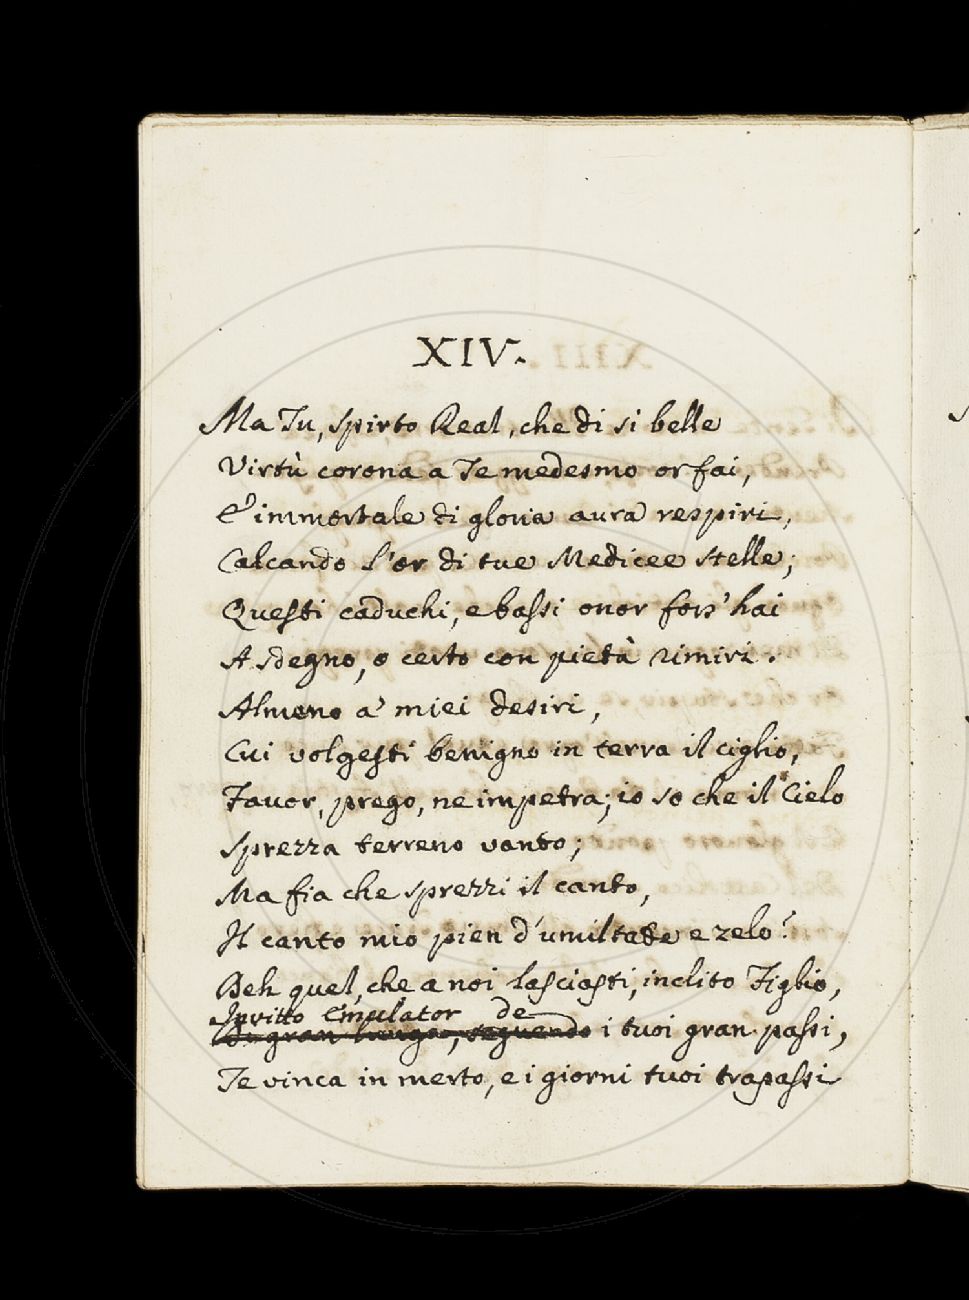 XIV.
Ma Tu, spirto Real, che di si belle
Virtù corona a Te medesmo or fai,
E' immortale di gloria aura respiri,
Calcando l'or di tue Medicee stelle;
Questi caduchi, e bassi onor fors' hai
A sdegno, o certo con pietà rimiri.
Almeno a' miei desiri,
Cui volgesti benigno in terra il ciglio,
Favor, prego, ne impetra; io so che il Cielo
Sprezza terreno vanto;
Ma fia che sprezzi il canto,
Il canto mio pien d'umiltade e zelo?
Deh quel, che a noi lasciasti, inclito Figlio,
Invitto Emulator de
seguendo i tuoi gran passi,
Te vinca in merto, e i giorni tuoi trapassi